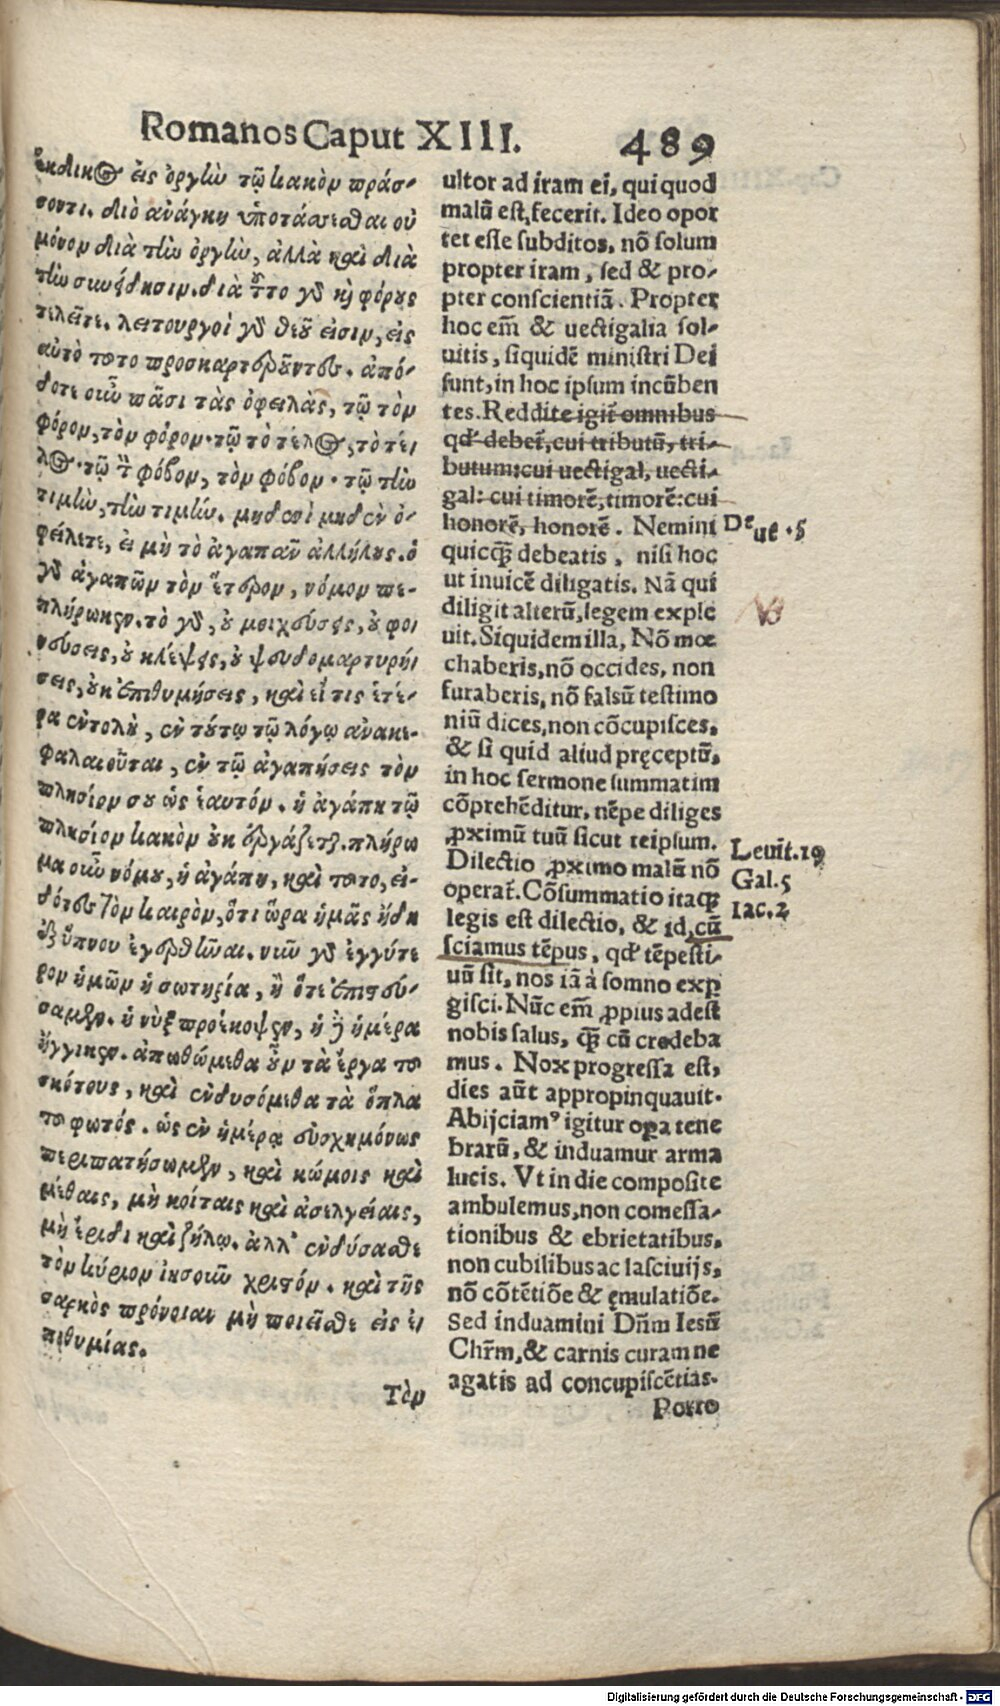 Romanos Caput XIII. 489
ἔκδικος εἰς ὀργὴν τῷ κακὸν πράσ-
σοντι. διὸ ἀνάγκη ὑποτάσσεσθαι οὐ
μόνον διὰ τὴν ὀργὴν, ἀλλὰ καὶ διὰ
τὴν συνείδησιν. διὰ τοῦτο γὰρ καὶ φόρους
τελεῖτε. λειτουργοὶ γὰρ θεοῦ εἰσιν, εἰς
αὐτὸ τοῦτο προσκαρτεροῦντες. ἀπό-
δοτε οὖν πᾶσι τὰς ὀφειλὰς, τῷ τὸν
φόρον, τὸν φόρον. τῷ τὸ τέλος, τὸ τέ
λος. τῷ τὸν φόβον, τὸν φόβον. τῷ τὴν
τιμὴν, τὴν τιμήν. μηδενὶ μηδὲν ὀ-
φείλετε, εἰ μὴ τὸ ἀγαπᾶν ἀλλήλους. ὁ
γὰρ ἀγαπῶν τὸν ἕτερον, νόμον πε-
πλήρωκεν. τὸ γὰρ, οὐ μοιχεύσεις, οὐ φον
νεύσεις, οὐ κλέψεις, οὐ ψευδομαρτυρή
σεις, οὐκ ἐπιθυμήσεις, καὶ εἴ τις ἑτέ-
ρα ἐντολὴ, ἐν τούτῳ τῷ λόγῳ ἀνακε-
φαλαιοῦται, ἐν τῷ ἀγαπήσεις τὸν
πλησίον σου ὡς ἑαυτόν. ἡ ἀγάπη τῷ
πλησίον κακὸν οὐκ ἐργάζεται. πλήρω
μα οὖν νόμου, ἡ ἀγάπη, καὶ τοῦτο, εἰ-
δότες τὸν καιρὸν, ὅτι ὥρα ἡμᾶς ἤδη
ἐξ ὕπνου ἐγερθῆναι. νῦν γὰρ ἐγγύτε
ρον ἡμῶν ἡ σωτηρία, ἢ ὅτε ἐπιστεύ-
σαμεν. ἡ νὺξ προέκοψεν, ἡ δὲ ἡμέρα
ἤγγικεν. ἀποθώμεθα οὖν τὰ ἔργα τοῦ
σκότους, καὶ ἐνδυσόμεθα τὰ ὅπλα
τοῦ φωτός. ὡς ἐν ἡμέρᾳ εὐσχημόνως
περιπατήσωμεν, καὶ κώμοις καὶ
μέθαις, μὴ κοίταις καὶ ἀσελγείαις,
μὴ ἔριδι καὶ ζήλῳ. ἀλλ' ἐνδύσασθε
τὸν κύριον ἰησοῦν χριστόν. καὶ τῆς
σαρκὸς πρόνοιαν μὴ ποιεῖσθε εἰς ἐ
πιθυμίας.
Τὸν
ultor ad iram ei, qui quod
malũ est, fecerit. Ideo opor
tet esse subditos, nõ solum
propter iram, sed & pro-
pter conscientiã. Propter
hoc em̃ & uectigalia sol-
uitis, siquidẽ ministri Dei
sunt, in hoc ipsum incũben
tes. Reddite igit̃ omnibus
qđ debet̃, cui tributũ, tri-
butum: cui uectigal, uecti-
gal: cui timorẽ, timorẽ: cui
honorẽ, honorẽ. Nemini
quicq̃ debeatis, nisi hoc
ut inuicẽ diligatis. Nã qui
diligit alterũ, legem exple
uit. Siquidem illa, Nõ mœ
chaberis, nõ occides, non
furaberis, nõ falsũ testimo
niũ dices, non cõcupisces,
& si quid aliud pręceptũ,
in hoc sermone summatim
cõprehẽditur, nẽpe diliges
ꝓximũ tuũ sicut teipsum.
Dilectio ꝓximo malũ nõ
operat̃. Cõsummatio itaqꝫ
legis est dilectio, & id, cũ
sciamus tẽpus, qđ tẽpesti-
uũ sit, nos iã à somno exꝑ
gisci. Nũc em̃ ꝓpius adest
nobis salus, q̃ cũ credeba
mus. Nox progressa est,
dies aũt appropinquauit.
Abijciamꝰ igitur oꝑa tene
brarũ, & induamur arma
lucis. Vt in die composite
ambulemus, non comessa-
tionibus & ebrietatibus,
non cubilibus ac lasciuijs,
nõ cõtẽtiõe & ęmulatiõe.
Sed induamini Dñm Iesũ
Chr̃m, & carnis curam ne
agatis ad concupiscẽtias.
Porro
Deut. 5
Leuit. 19
Gal. 5
Iac. 2
Digitalisierung gefördert durch die Deutsche Forschungsgemeinschaft - DFG